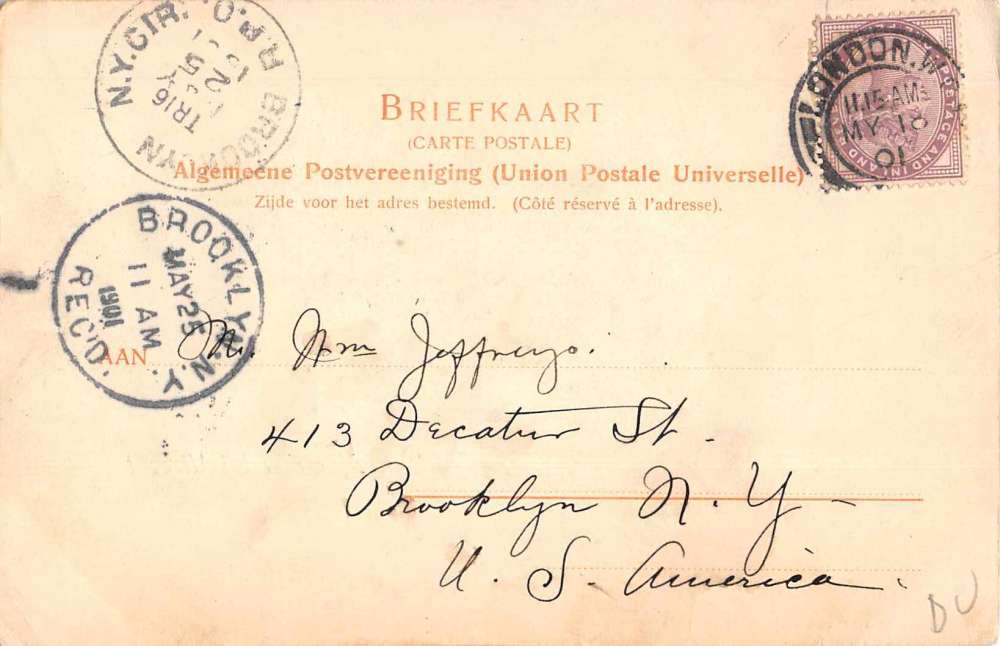 N.Y. CIR.
BROOKLYN
R.P.O.
TR16
25
LONDON. W
11.15 AM
MY 18
01
POSTAGE AND INLAND
BRIEFKAART
(CARTE POSTALE)
Algemeene Postvereeniging (Union Postale Universelle)
Zijde voor het adres bestemd. (Côté réservé à l'adresse).
BROOKLYN, N.Y.
MAY 25
11 AM
1901
REC'D.
AAN
M. Wm Jeffreys.
413 Decatur St.
Brooklyn N. Y
U. S. America.
DU